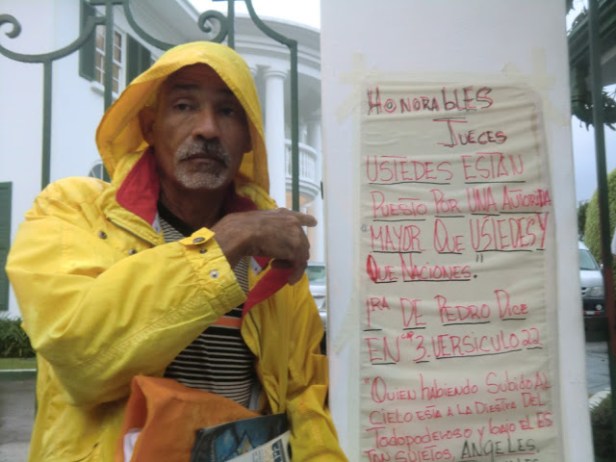 H@NORABLES
JUECES
USTEDES ESTÁN
PUESTO POR UNA AUTORIDA
"MAYOR QUE USTEDES Y
QUE NACIONES."
1RA DE PEDRO DICE
EN 3. VERSICULO 22
"QUIEN HABIENDO SUBIDO AL
CIELO ESTA A LA DIESTRA DEL
TODOPODEROSO Y BAJO EL ES
TAN SUJETOS, ANGELES,